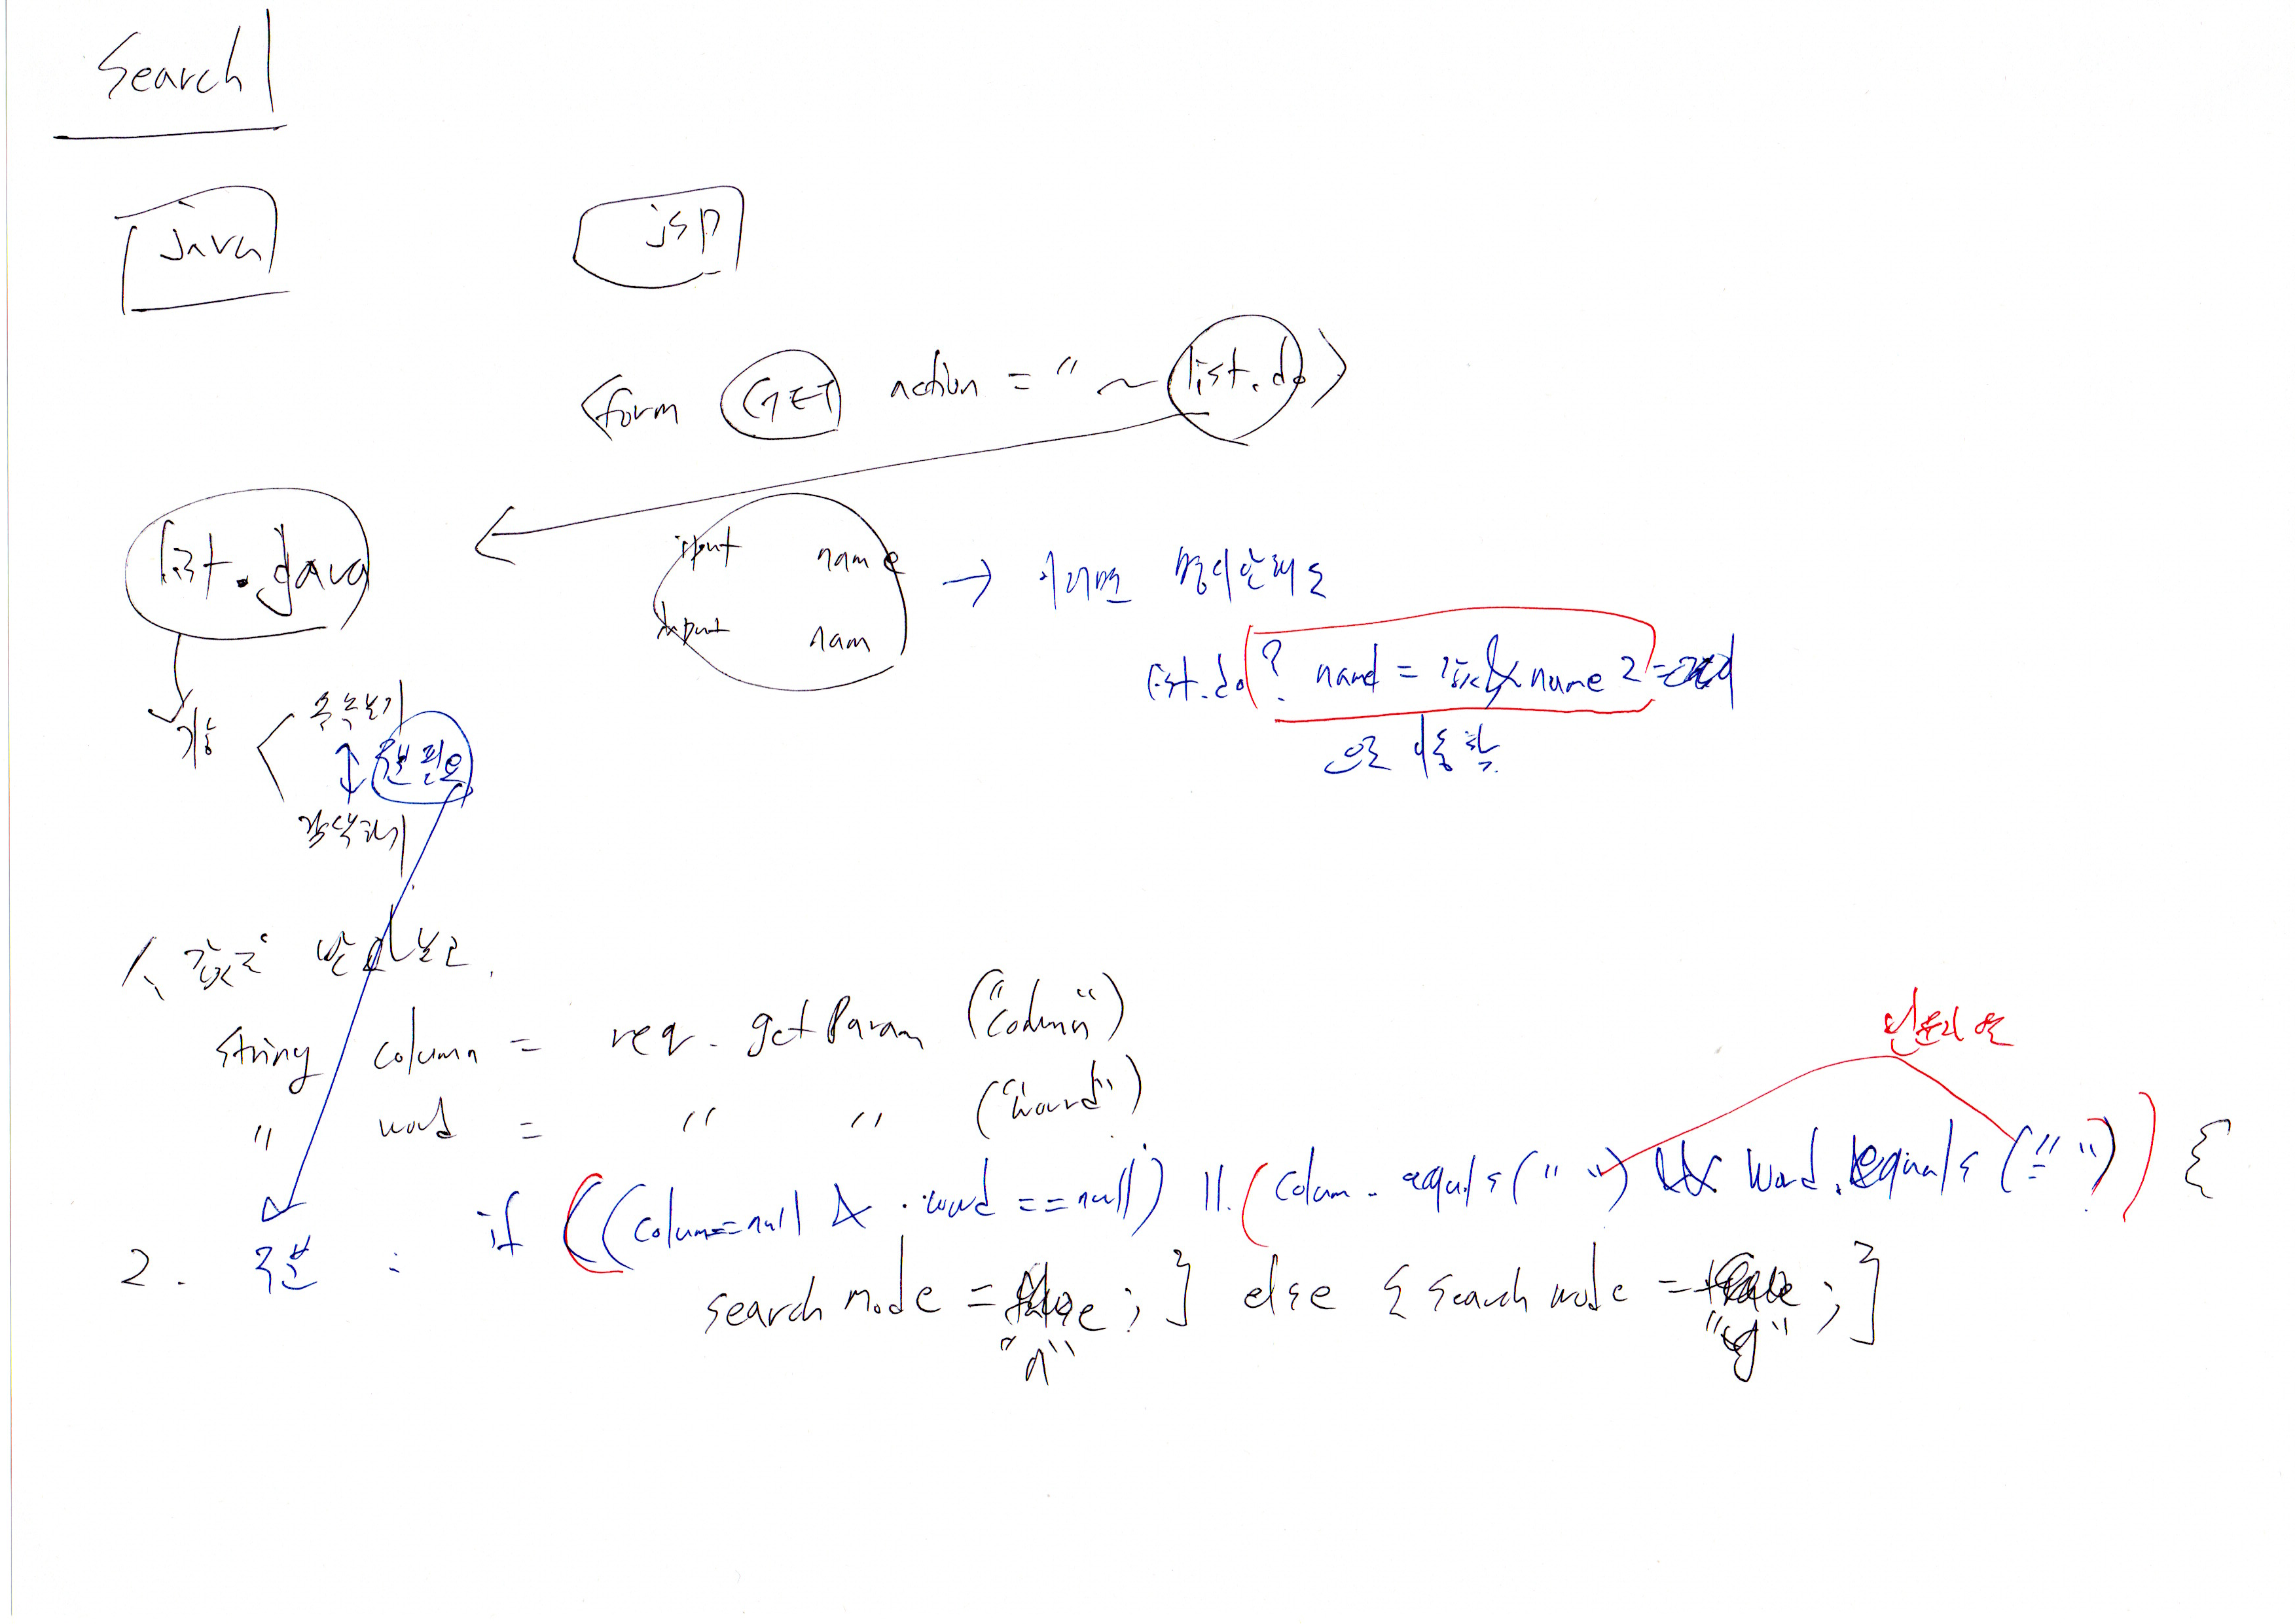 Search
Java
jsp
<form GET action = " ~ list.do >
list.java
input name
input nam
→ 이러면 명시안해도
list.do ? name1 = 값&name2 =
으로 이동함.
기능
목록보기
구분필요
검색하기
1. 값을 받아보고.
String column = req. getParam ("column")
" word = " " ("word")
빈문자열
2. 구분 : if ((column==null && word ==null) || (colum. equals(" ") && word.equals (" ")) {
search mode = "n" ; } else { search mode = "y" ; }